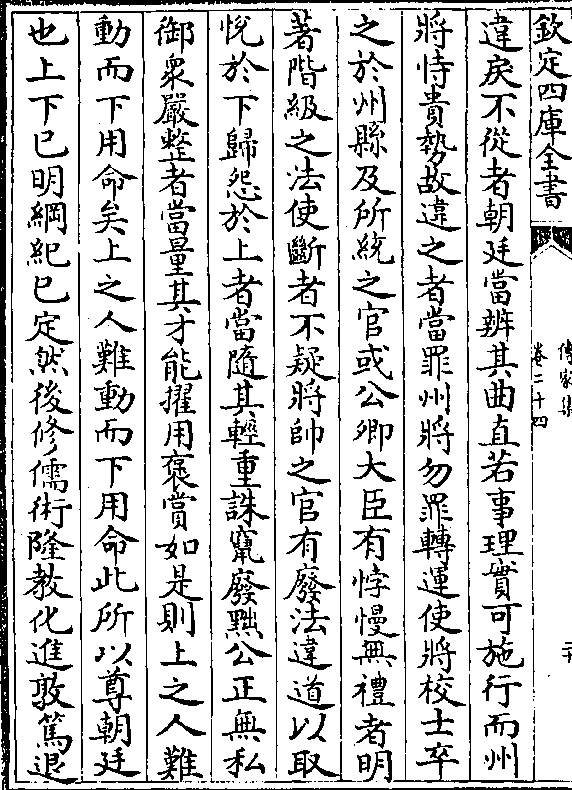 欽定四庫全書
傳家集
卷二十四
違戾不從者朝廷當辨其曲直若事理實可施行而州
將恃貴勢故違之者當罪州將勿罪轉運使將校士卒
之於州縣及所統之官或公卿大臣有悖慢無禮者明
著階級之法使斷者不疑將帥之官有廢法違道以取
悅於下歸怨於上者當隨其輕重誅竄廢黜公正無私
御衆嚴整者當量其才能擢用褒賞如是則上之人難
動而下用命矣上之人難動而下用命此所以尊朝廷
也上下已明綱紀已定然後修儒術隆教化進敦篤退